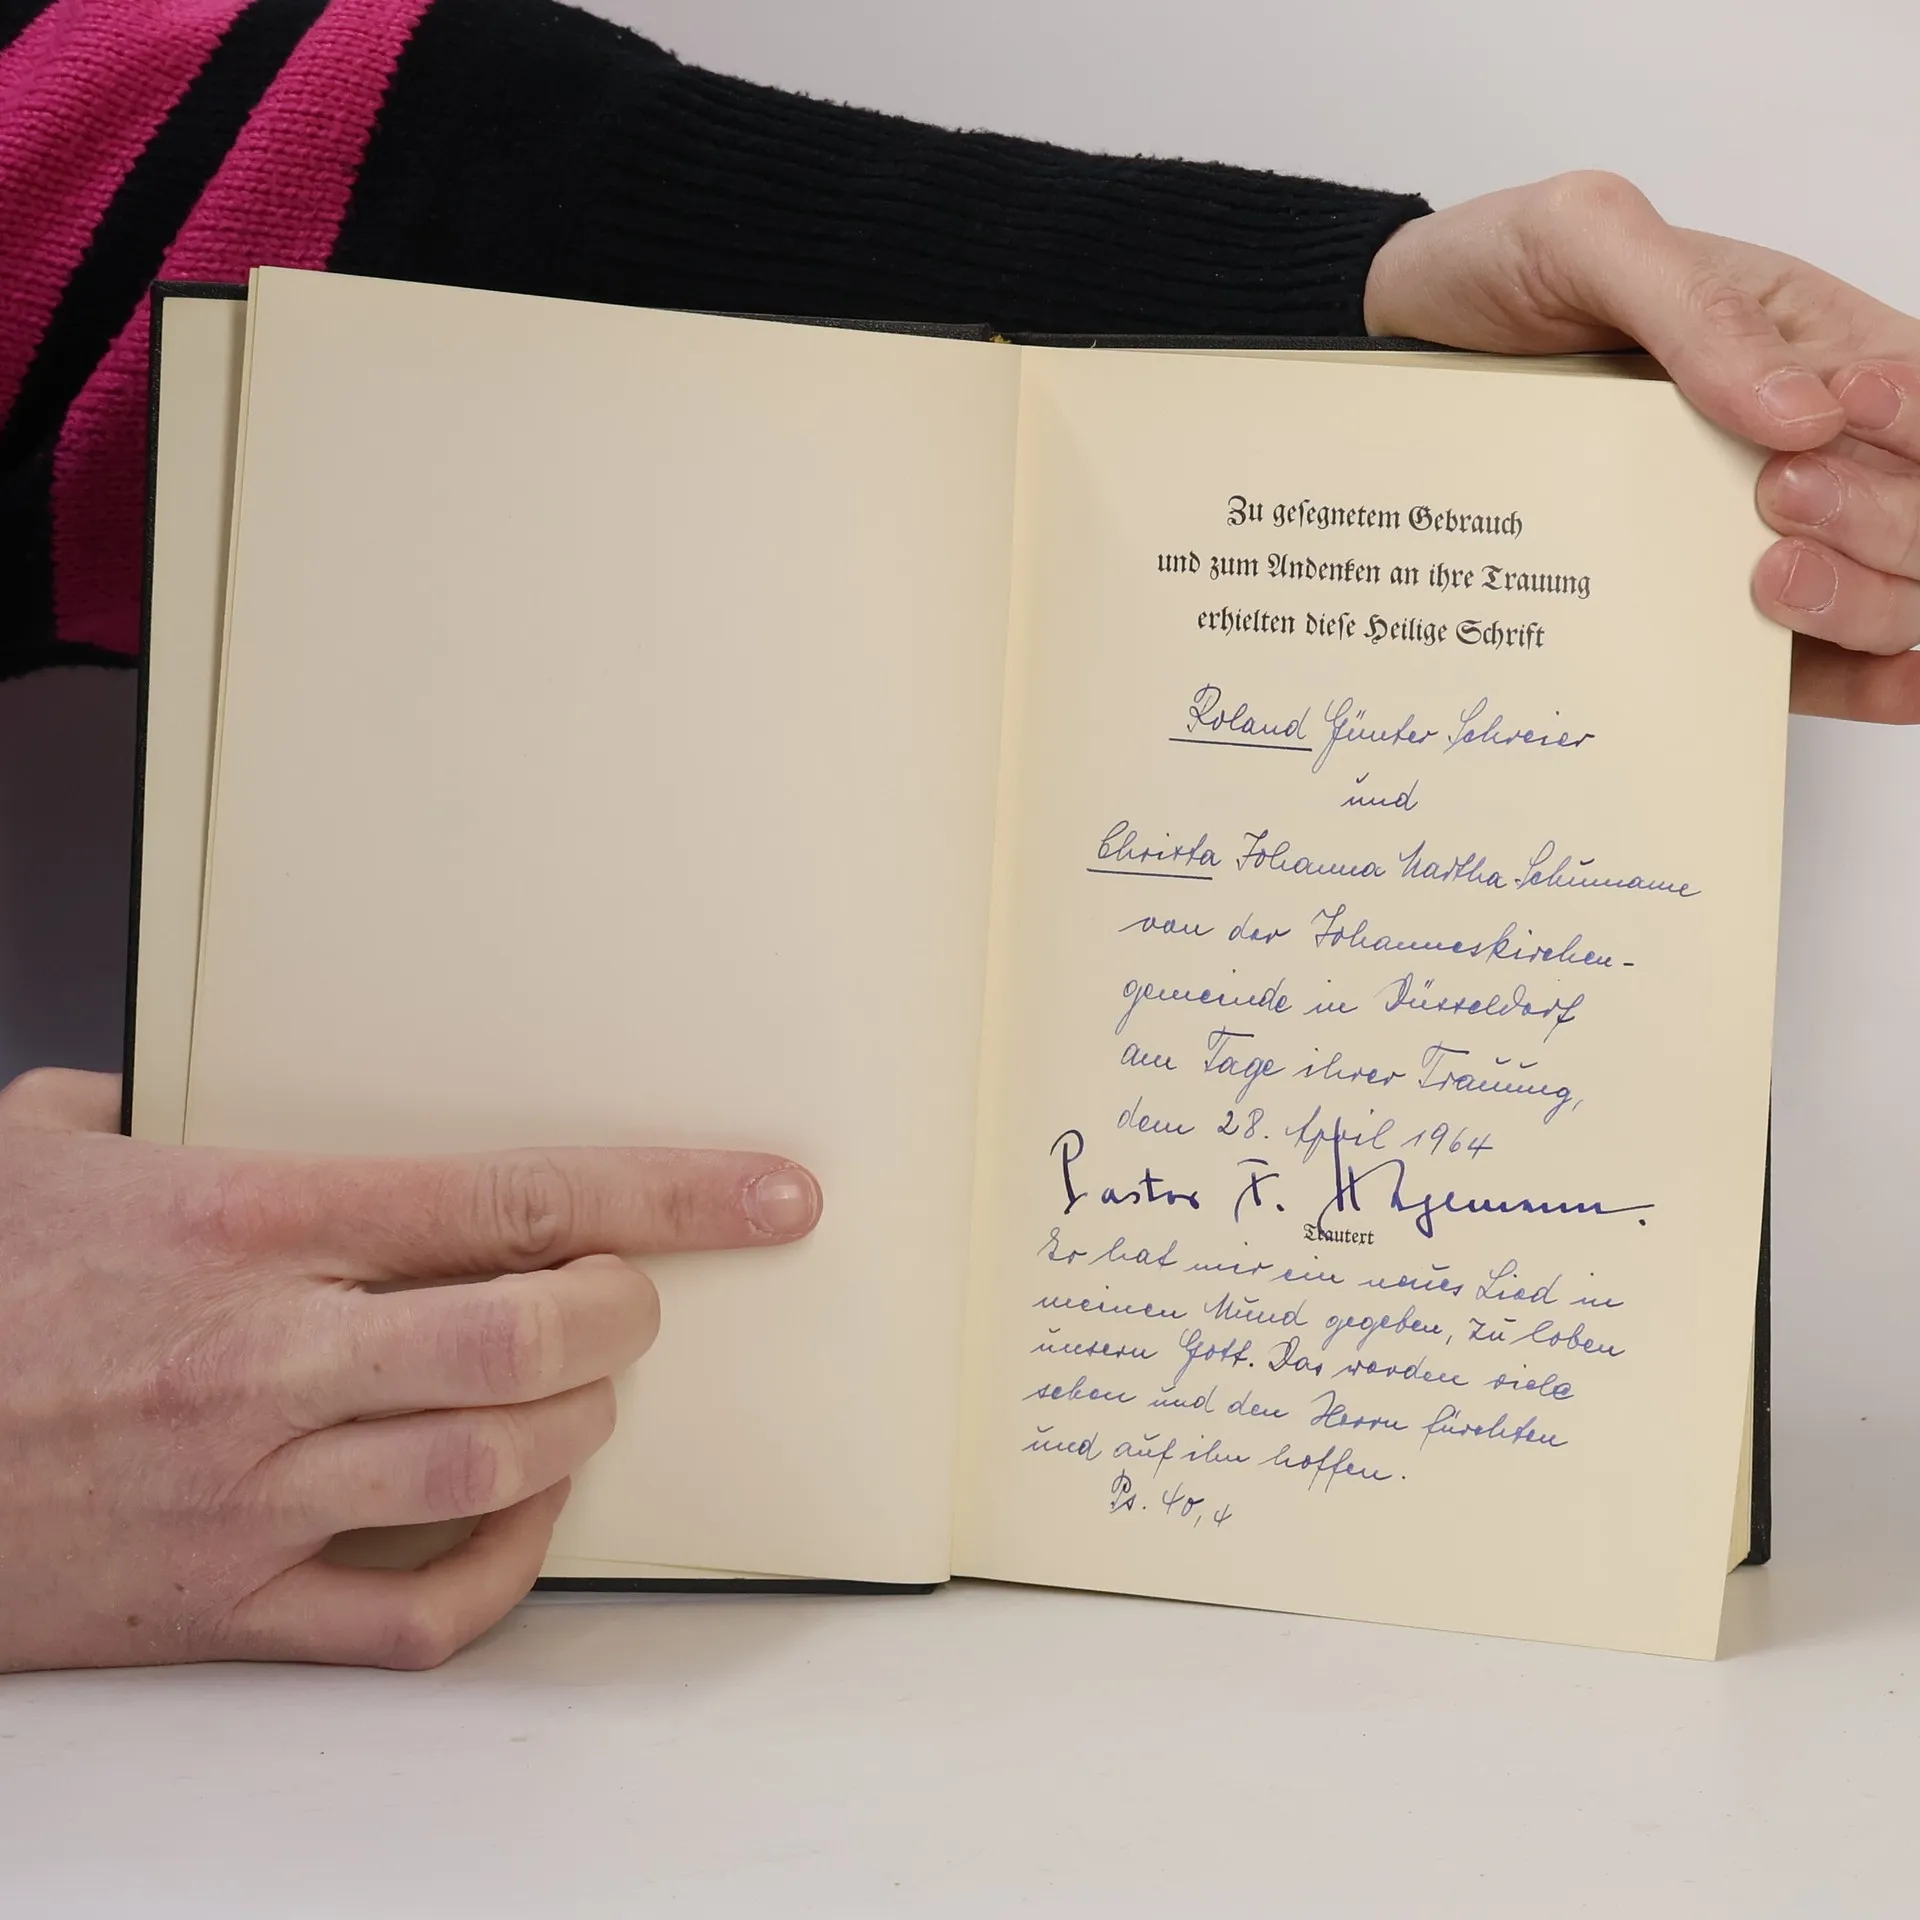 Zu gesegnetem Gebrauch
und zum Andenken an ihre Trauung
erhielten diese Heilige Schrift
Roland Günter Schreier
und
Christa Johanna Martha Schumann
von der Johanneskirchen-
gemeinde in Düsseldorf
am Tage ihrer Trauung,
dem 28. April 1964
Pastor
Trautext
Er hat mir ein neues Lied in
meinen Mund gegeben, zu loben
unsern Gott. Das werden viele
sehen und den Herrn fürchten
und auf ihn hoffen.
Ps. 40,4